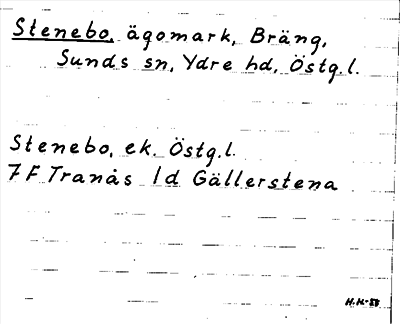 Stenebo, ägomark, Bräng,
Sunds sn, Ydre hd, Östg.l.
Stenebo, ek. Östg.l.
7 F Tranås 1d Gällerstena
H.K-58